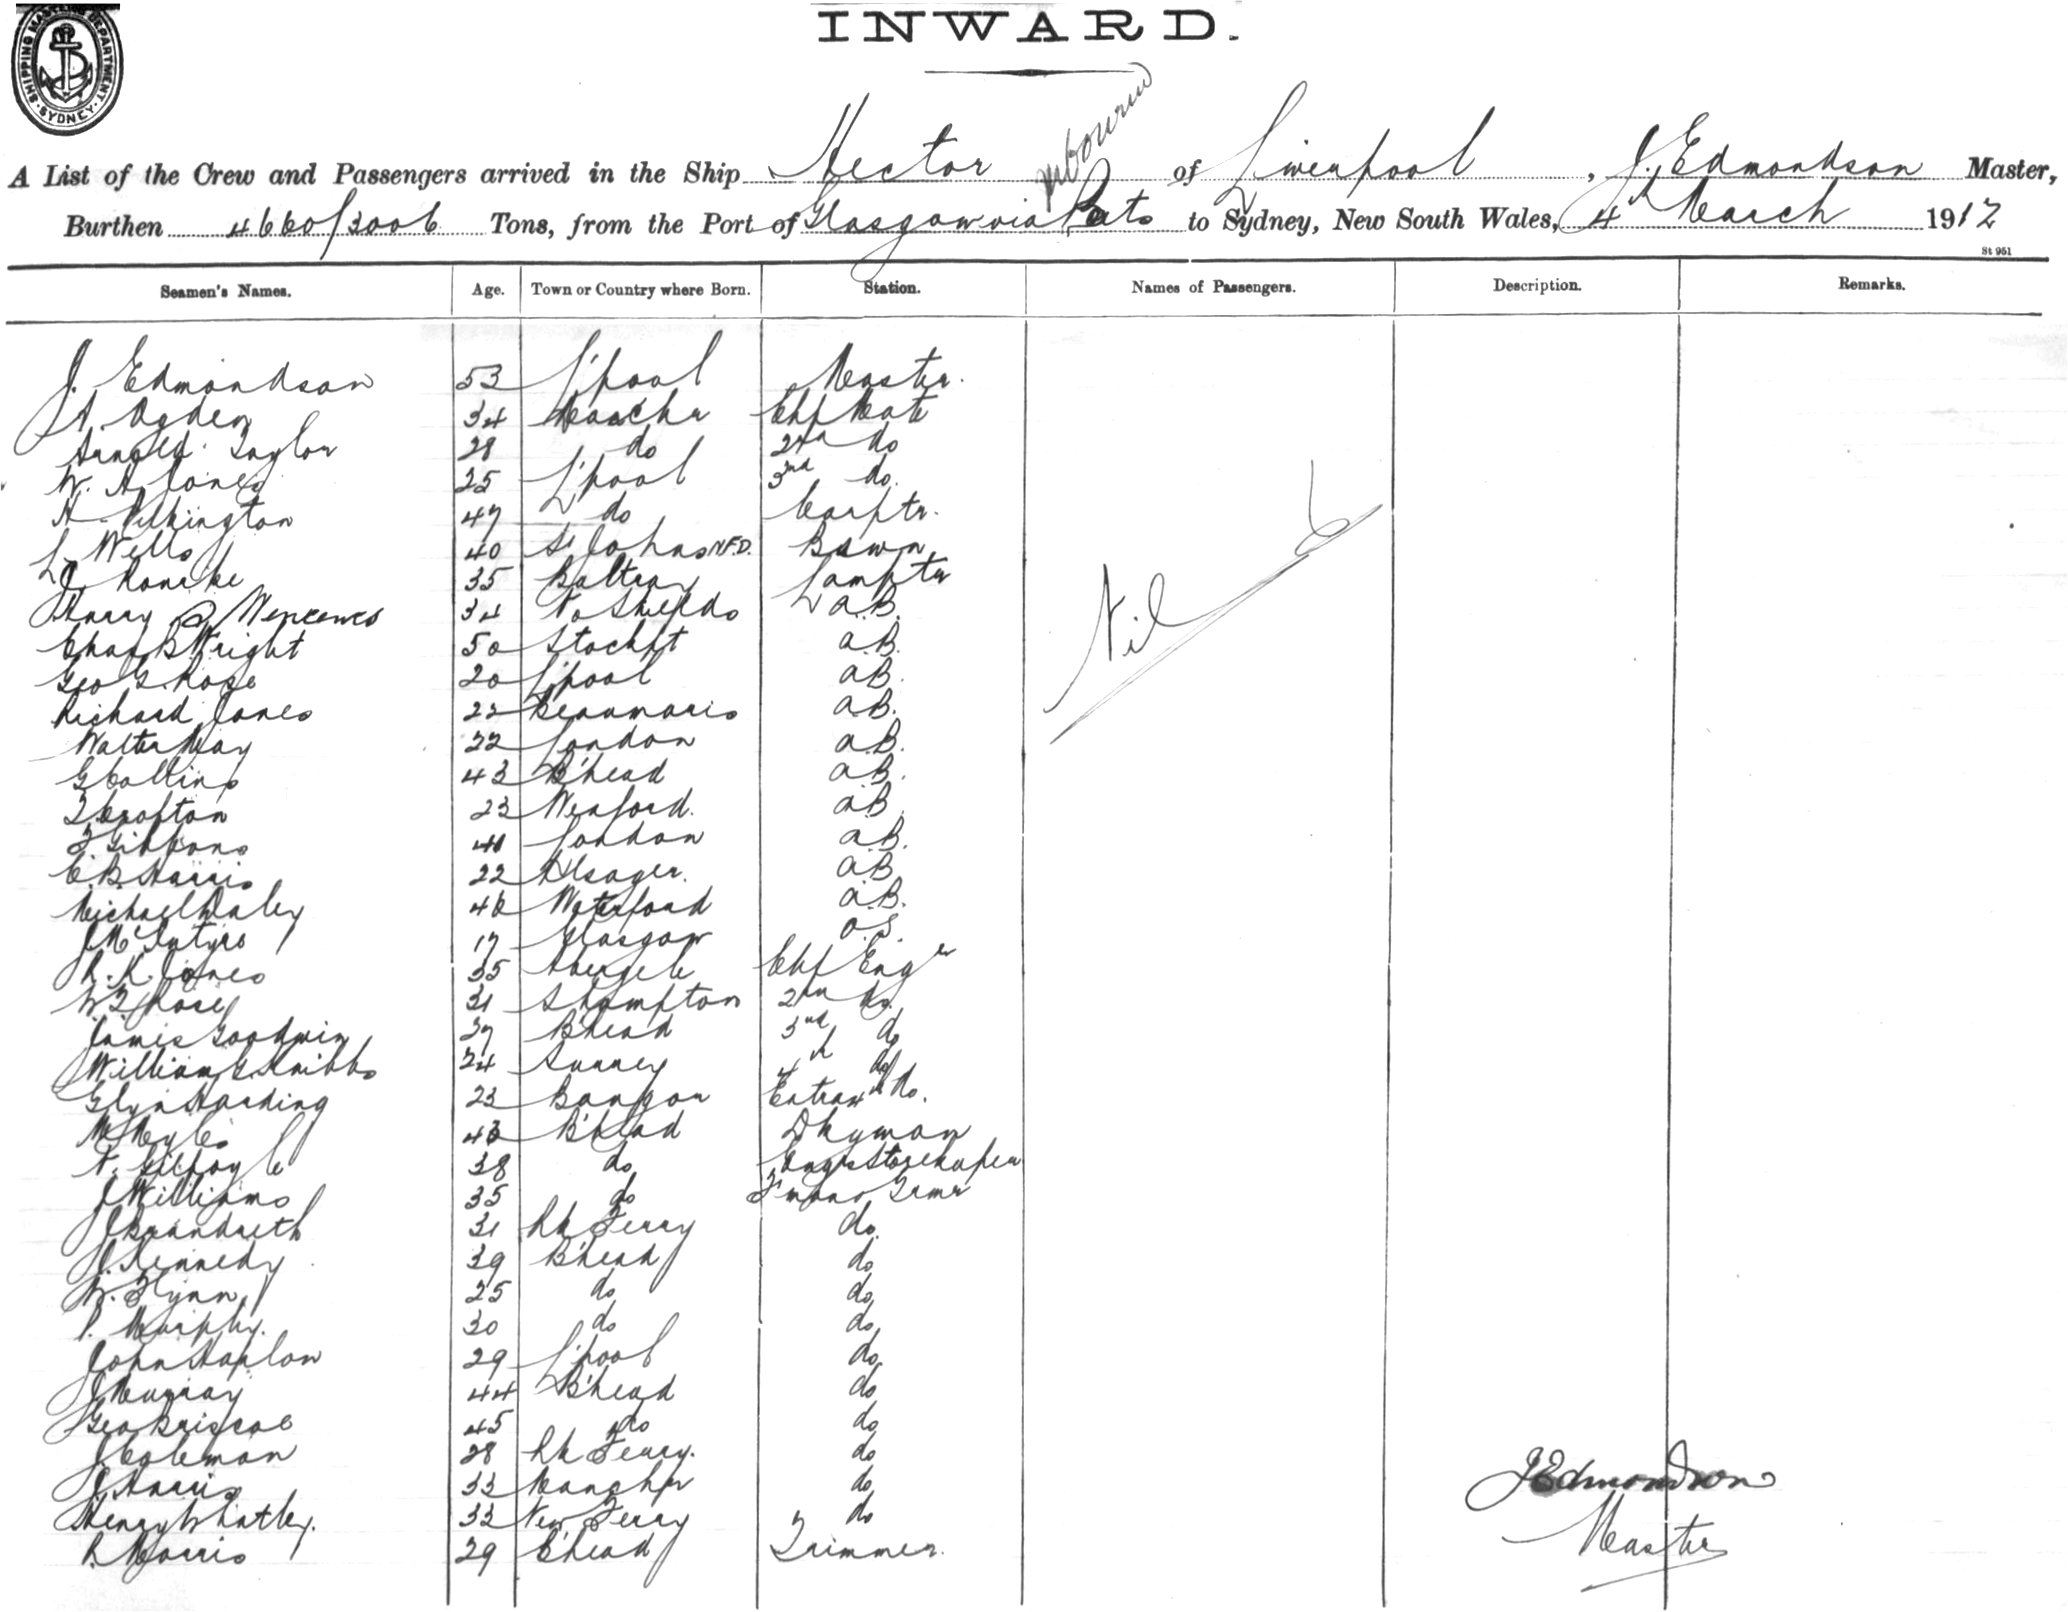 INWARD.
SHIPPING MASTER'S DEPARTMENT · SYDNEY ·
A List of the Crew and Passengers arrived in the Ship Hector of Liverpool, J. Edmondson Master,
Melbourne
Burthen 4660/3006 Tons, from the Port of Glasgow via Ports to Sydney, New South Wales, 4 March 1912
St 951
Seamen's Names. Age. Town or Country where Born. Station. Names of Passengers. Description. Remarks.
J. Edmondson 53 L'pool Master.
A. Ogden 34 Manchr Chf Mate
Arnold Taylor 28 do 2nd do
W. H. Jones 25 L'pool 3rd do.
H. Pilkington 47 do Carptr.
L. Wells 40 St Johns N.F.D. Bswn
J. Rourke 35 Baltray Lamptr
Harry 34 No Shields A.B.
Chas B. Wright 50 Stockpt A.B.
Geo G. Rose 20 L'pool A.B.
Richard Jones 22 Beaumaris A.B.
Walter May 22 London A.B.
G Collins 43 B'head A.B.
T Crofton 23 Wexford. A.B.
F Gibbons 41 London A.B.
C. B. Harris 22 Alsager. A.B.
Michael Daley 46 Waterford A.B.
J McIntyre 17 Glasgow O.S.
R. R. Jones 35 Abergele Chf Engr
W. J. Rose 31 S'hampton 2nd do.
James Goodwin 27 B'head 3rd do
William G. Knibbs 24 Surrey 4th do
Glyn Harding 23 Bangor Extra 4th do.
M Myles 43 B'head Dkyman
N. Gilfoyle 38 do Engrs Storekeeper
J Williams 35 do F'man & Trmr
J Brandreth 31 Rk Ferry do.
J. Kennedy 39 B'head do
W. Flynn 25 do do
P. Murphy. 30 do do
John Hanlon 29 L'pool do
J Murray 44 B'head do
Geo Briscoe 45 do do
J Coleman 28 Rk Ferry. do
J Harris 33 Manchr do
Henry Whatley. 33 New Ferry do
R. Morris 29 B'head Trimmer.
Nil
J Edmondson
Master